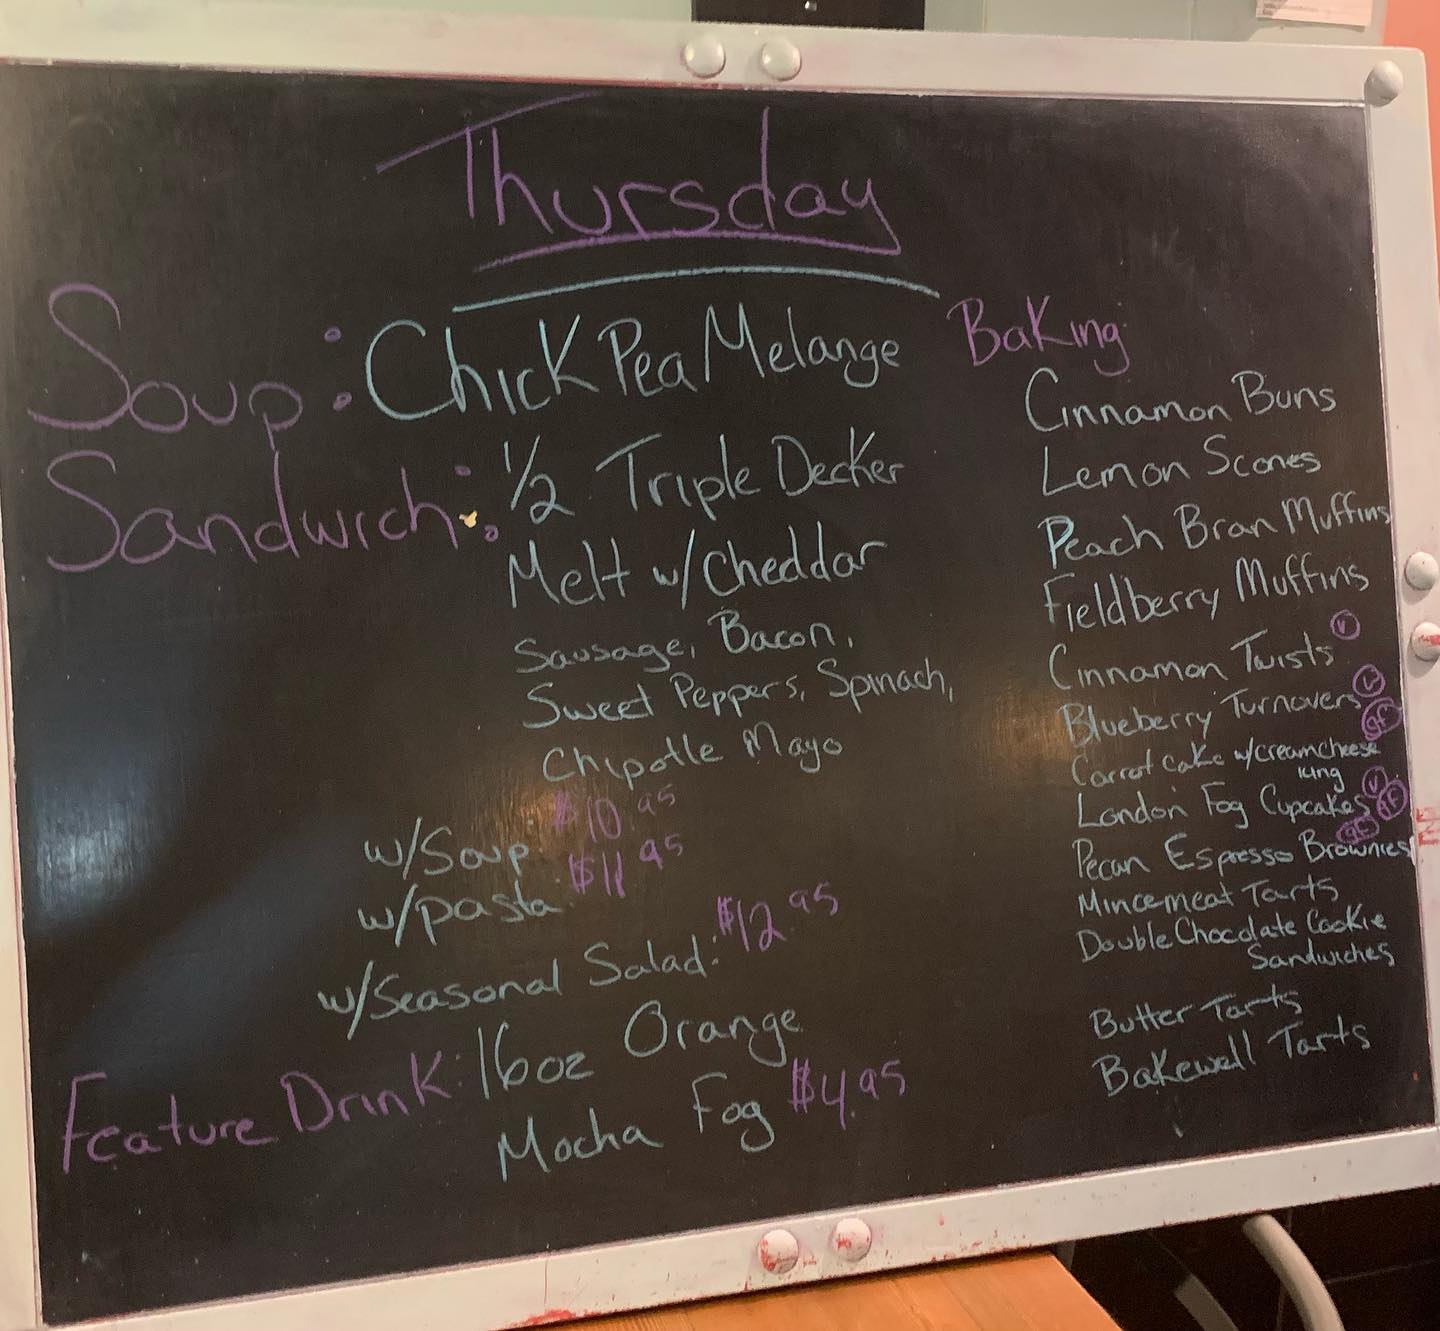 Thursday
Soup: Chick Pea Melange
Sandwich: 1/2 Triple Decker
Melt w/Cheddar
Sausage, Bacon,
Sweet Peppers, Spinach,
Chipotle Mayo
w/Soup $10.95
w/pasta $11.95
w/Seasonal Salad: $12.95
Feature Drink: 16oz Orange
Mocha Fog $4.95
Baking
Cinnamon Buns
Lemon Scones
Peach Bran Muffins
Fieldberry Muffins
Cinnamon Twists V
Blueberry Turnovers V
Carrot cake w/creamcheese GF
icing
London Fog Cupcakes V GF
Pecan Espresso Brownies GF
Mincemeat Tarts
Double Chocolate Cookie
Sandwiches
Butter Tarts
Bakewell Tarts